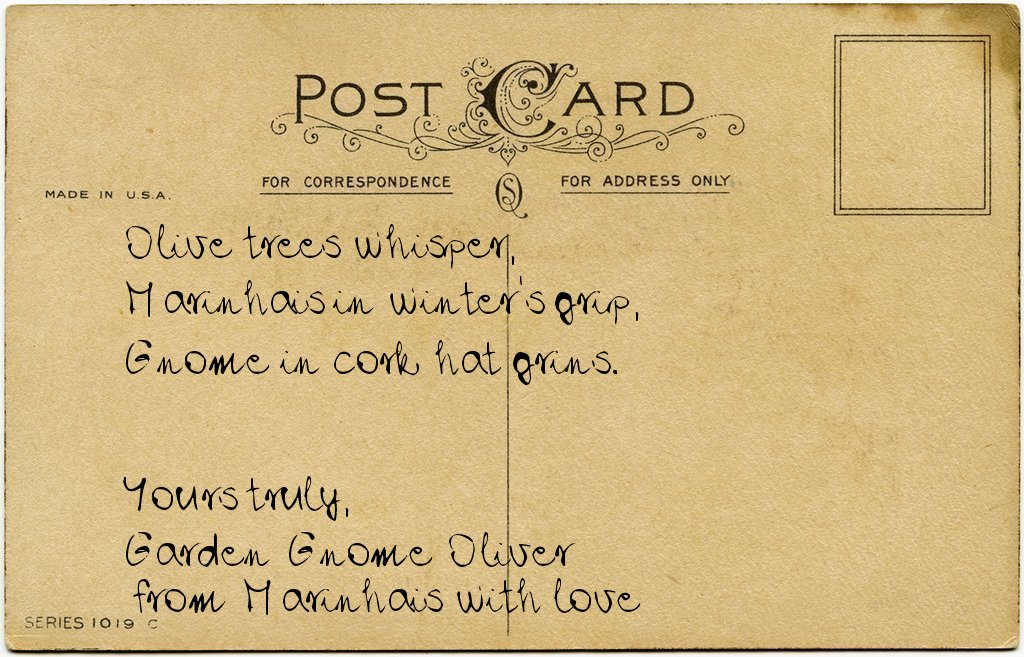 POST CARD
FOR CORRESPONDENCE
FOR ADDRESS ONLY
MADE IN U.S.A.
Olive trees whisper,
Marinhais in winter's grip,
Gnome in cork hat grins.
Yours truly,
Garden Gnome Oliver
from Marinhais with love
SERIES 1019 C